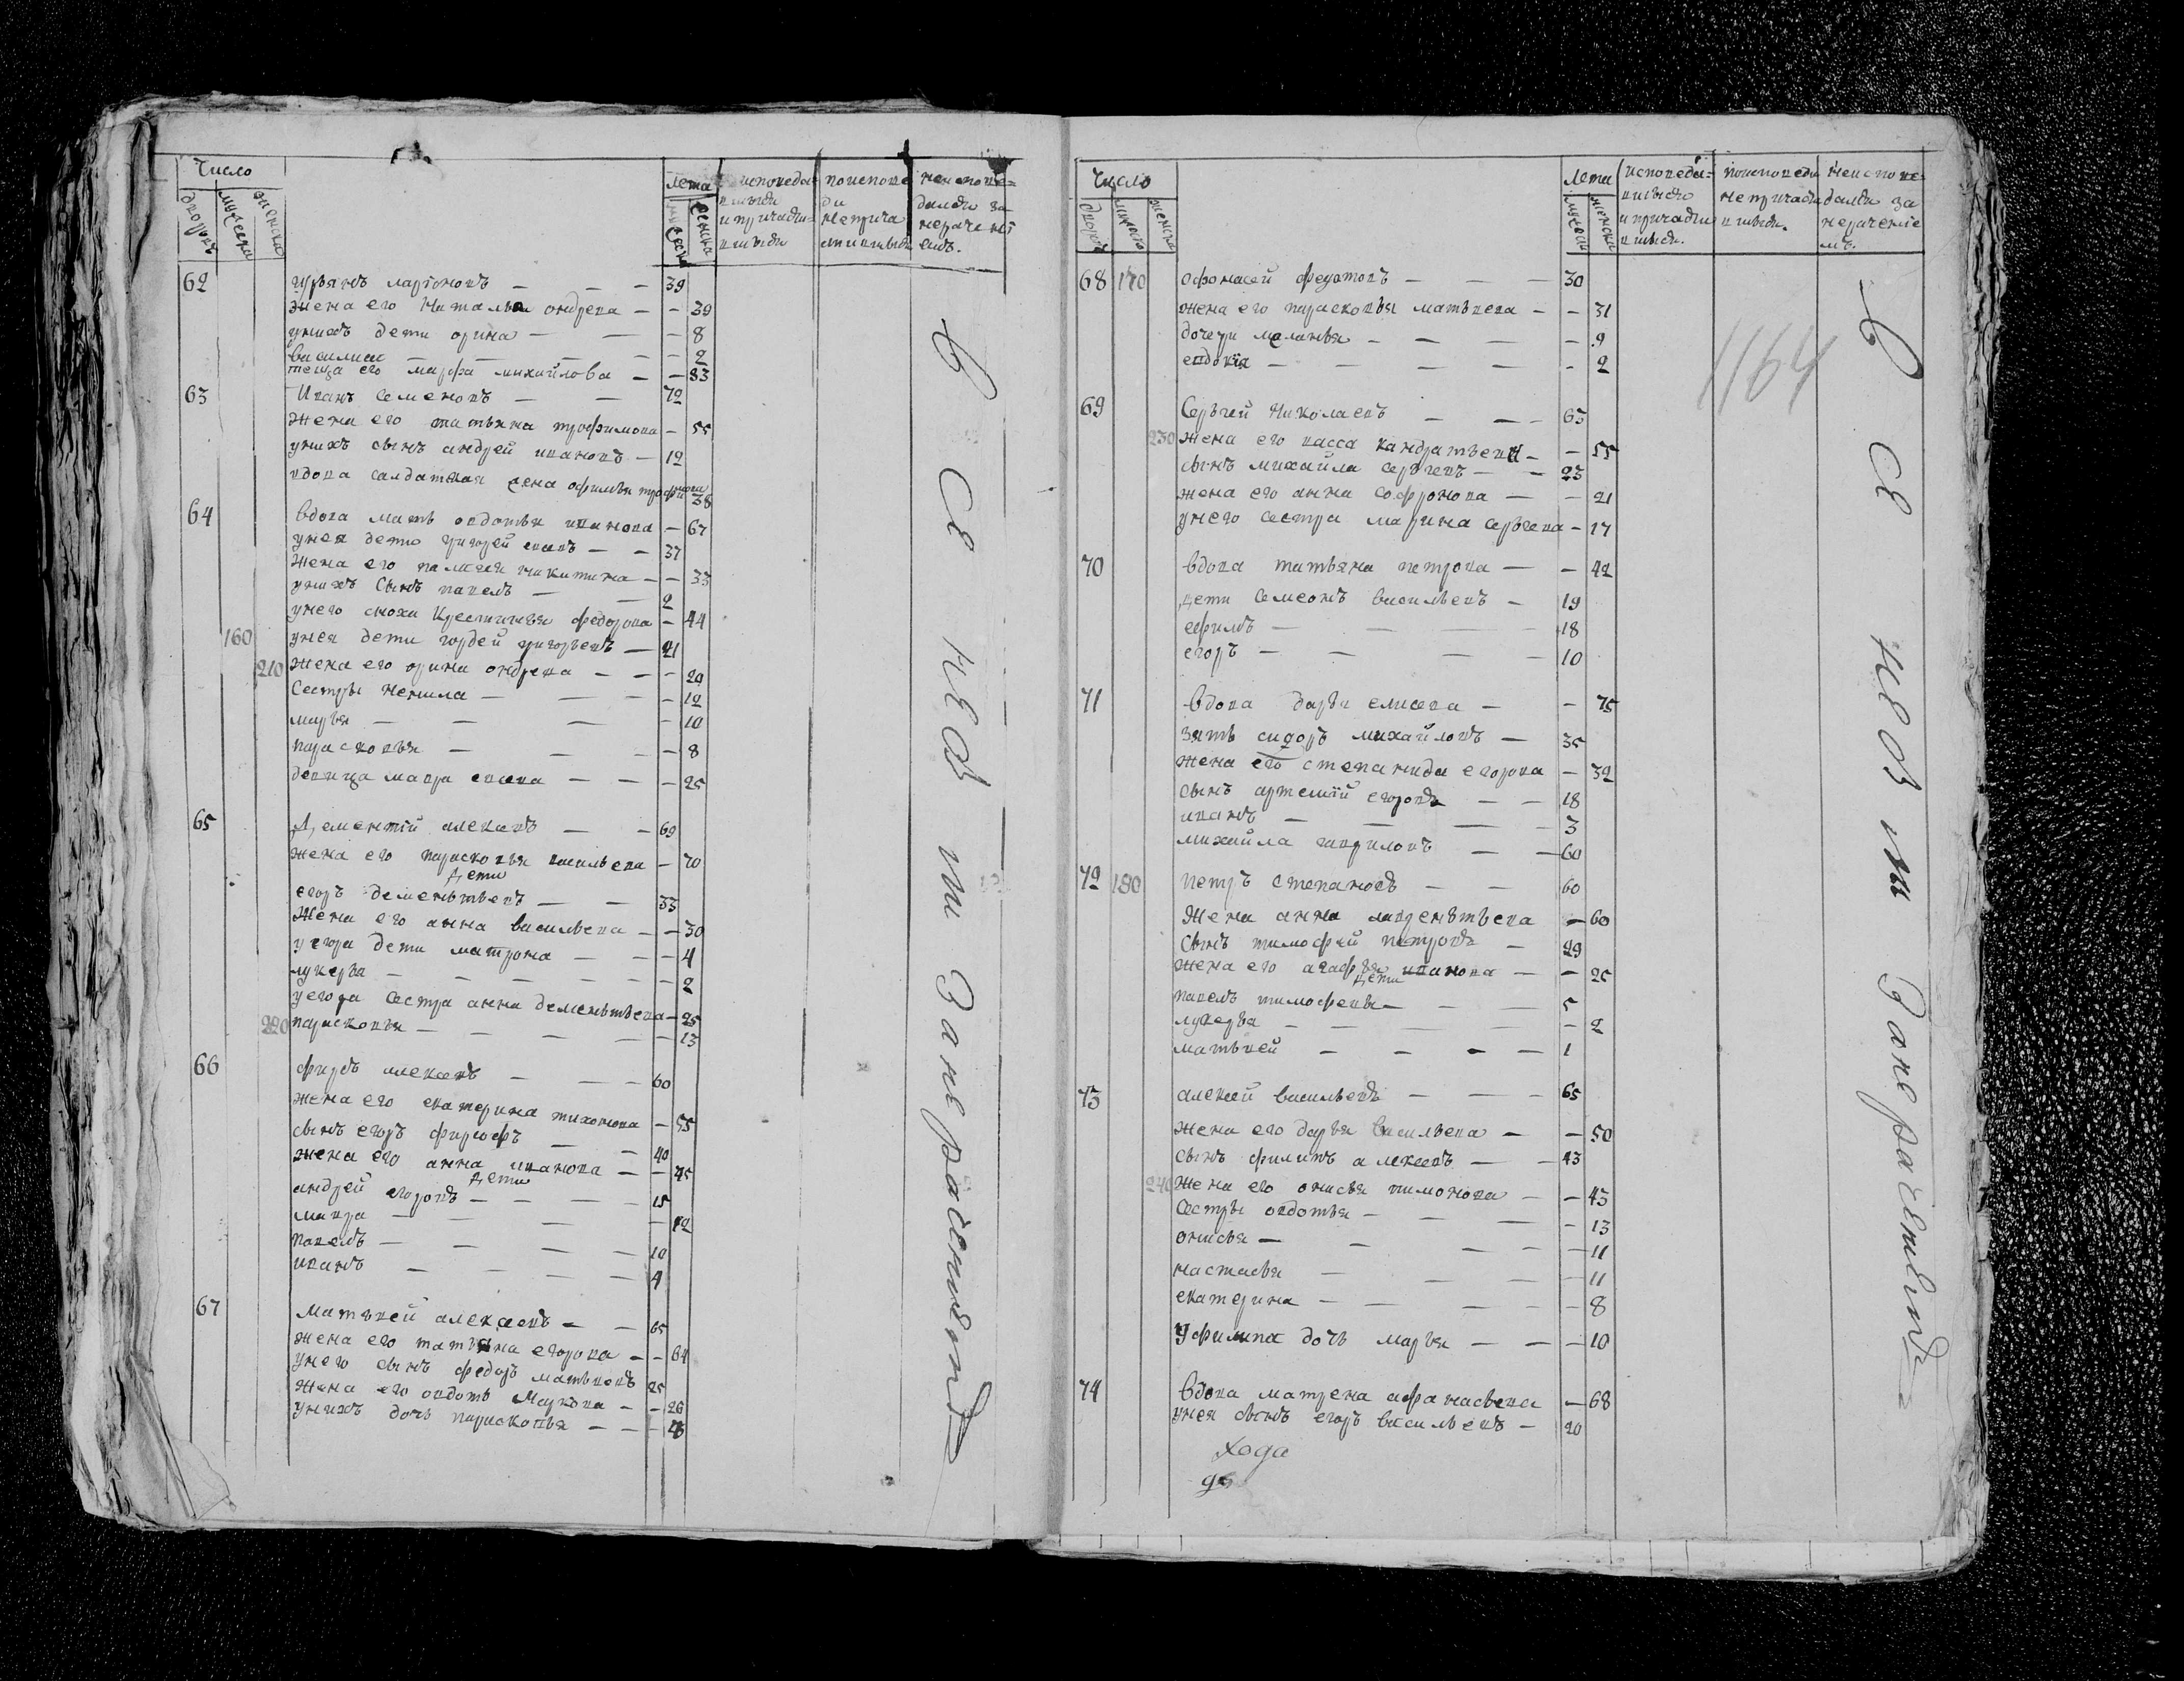 Число
дворовъ
мужеска
женска
Лета
мужеск
женска
исповеда
вшыяся
и причащ
вшыяся
поиспове
ди
неприча
стившыяся
неиспове=
далися за
нерачені
емъ.
62 гурьянъ ларіоновъ — — — 39
жена его наталья ондрева — — 39
унихъ дети орина — — — 8
василиса — — — 2
теща его марфа михайлова — — 83
63 Иванъ Семеновъ — — 72
жена его татьяна трофимова — 55
унихъ сынъ андрей ивановъ — 12
вдова салдатская жена офимья трофимова 38
64 вдова мать овдотья иванова — 67
унея дети григорей — — 37
жена его пелагея никитина — — 33
унихъ сынъ павелъ — — 2
унего сноха Крестинья федорова — 44
160 унея дети гордей григорьевъ — 21
210 жена его орина ондрева — — — 20
Сестры ненила — — — 12
марья — — — 10
парасковья — — — 8
девица мавра — — — 25
65 Дементій алексевъ — — 69
жена его парасковья васильева — 70
дети
егоръ дементьевъ — — 33
жена его анна васильева — — 30
уегора дети матрона — — — 4
лукерья — — — — 2
уегора сестра анна дементьева — 25
220 парасковья — — — — 13
66 фирсъ алексевъ — — — 60
жена его екатерина тихонова — 55
сынъ егоръ фирсофъ — — 40
жена его анна иванова — — 45
дети
андрей егоровъ — — — 15
мавра — — — — 12
павелъ — — — — 10
иванъ — — — — 4
67 Матвей алексеевъ — — 65
жена его татьяна егорова — — 64
унего сынъ федоръ матвеевъ 25
жена его овдотья Маркова — — 26
унихъ дочь парасковья — — — 4
Все неву за нерачениемъ
Число
дворовъ
мужеска
женска
Лета
мужеск
женска
исповеда=
вшыяся
и причащ
вшыяся.
поисповеди
непричасти
вшыяся.
неиспове=
дался за
нерачение
мъ.
1164
68 170 афонасей федотовъ — — — 30
жена его парасковья матвеева — — 31
дочери меланья — — — — 9
евдокія — — — — 2
69 Сергей Николаевъ — — — 63
230 жена его васса кандратьева — — 55
сынъ михайла сергеевъ — — 23
жена его анна софронова — — 21
унего сестра марина сергеева — 17
70 вдова татьяна петрова — — 42
дети семеонъ васильевъ — 19
ефимъ — — — — 18
егоръ — — — — 10
71 вдова дарья елисева — — 75
зять сидоръ михайловъ — 35
жена его степанида егорова — 32
сынъ артемій егоровъ — — 18
иванъ — — — — 3
михайла гавриловъ — — 60
72 180 петръ степановъ — — 60
жена анна лаврентьева — 60
сынъ тимофей петровъ — 29
жена его агафья иванова — — 25
дети
павелъ тимофеевъ — — — 5
лукерья — — — — 2
матвей — — — — 1
73 алексей васильевъ — — — 65
жена его дарья васильева — — 50
сынъ филипъ алексеевъ — — 43
240 жена его онисья тимонова — — 43
Сестры овдотья — — — — 13
онисья — — — — 11
настасья — — — — 11
екатерина — — — — 8
уфилипа дочь марья — — — 10
74 вдова матрена афанасьева — 68
унея сынъ егоръ васильевъ — 20